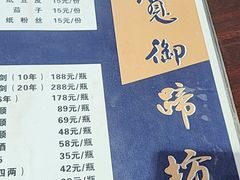 纸豆皮 15元/份
茄子 15元/份
纸粉丝 15元/份
剑（10年） 188元/瓶
剑（20年） 288元/瓶
6年） 178元/瓶
顺 89元/瓶
顺 69元/瓶
48元/瓶
酒 58元/瓶
35元/瓶
四两） 42元/瓶
宽御蹄坊